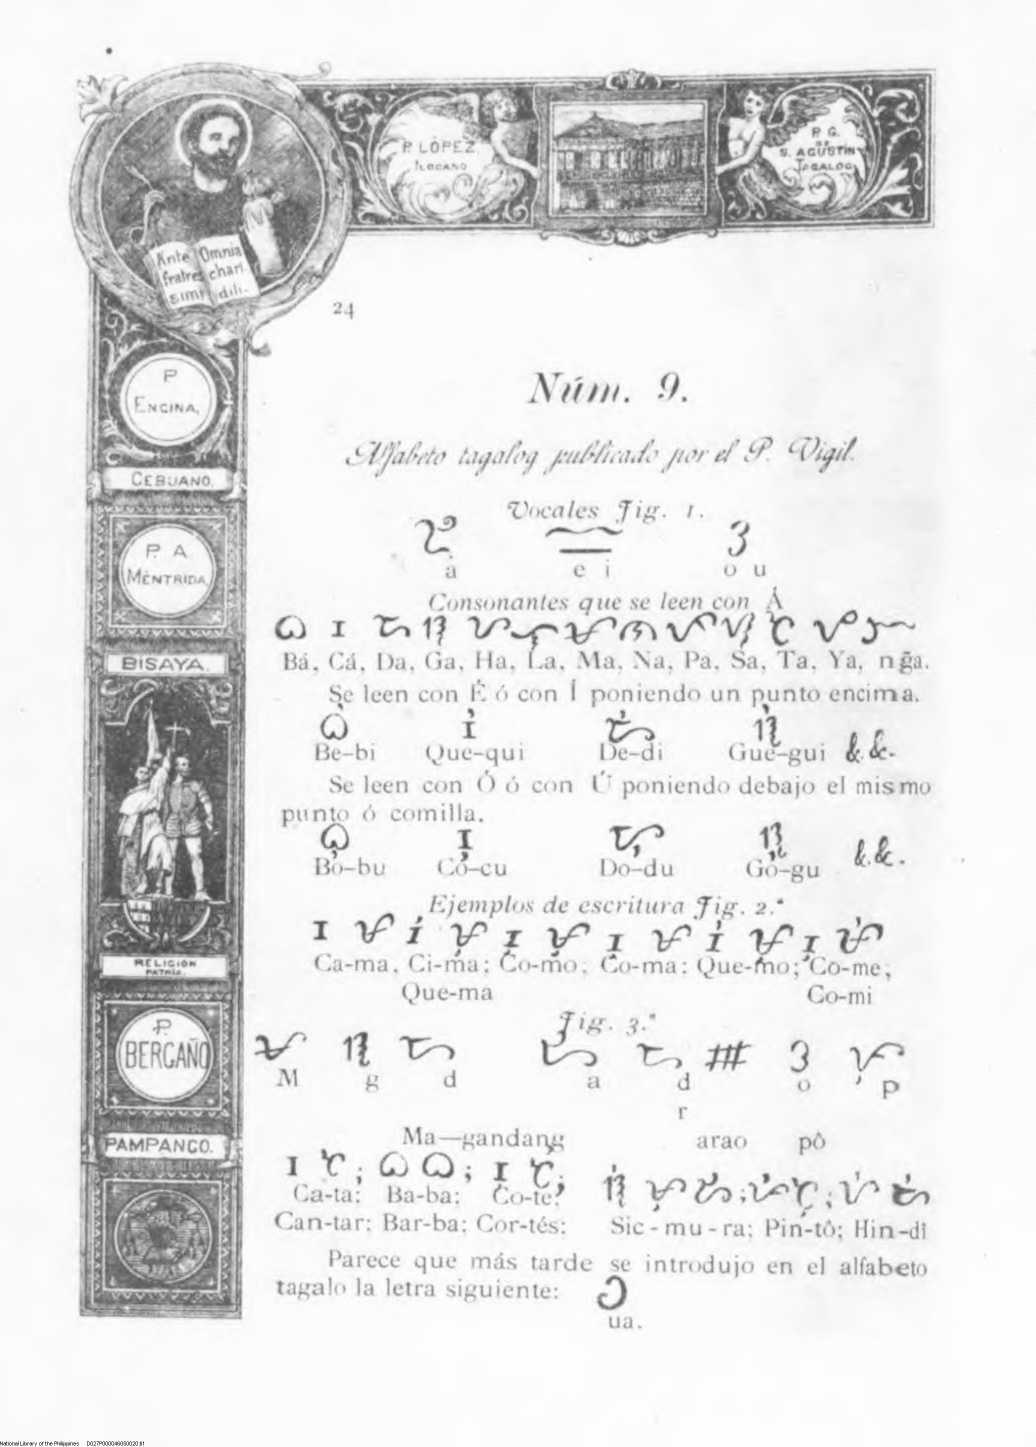 P. LÓPEZ
ILOCANO
P. G.
DE
S. AGUSTIN
TAGALOG
Ante Omnia
fratres chari
simi dili.
24
P
ENCINA,
CEBUANO.
P. A
MÉNTRIDA,
BISAYA.
RELIGION
PATRIA.
P.
BERGAÑO
PAMPANGO.
Núm. 9.
Alfabeto tagalog publicado por el P. Vigil.
Vocales Fig. 1.
a e i o u
Consonantes que se leen con Á
Bá, Cá, Da, Ga, Ha, La, Ma, Na, Pa, Sa, Ta, Ya, ng̃a.
Se leen con É ó con Í poniendo un punto encima.
Be-bi Que-qui De-di Gue-gui &. &.
Se leen con Ó ó con Ú poniendo debajo el mismo
punto ó comilla.
Bo-bu Co-cu Do-du Go-gu &. &.
Ejemplos de escritura Fig. 2.ª
Ca-ma, Ci-ma; Co-mo; Co-ma; Que-mo; Co-me;
Que-ma Co-mi
Fig. 3.ª
M g d a d o p
r
Ma—gandang arao pô
Ca-ta; Ba-ba; Co-te;
Can-tar; Bar-ba; Cor-tés: Sic-mu-ra; Pin-tô; Hin-dî
Parece que más tarde se introdujo en el alfabeto
tagalo la letra siguiente:
ua.
National Library of the Philippines